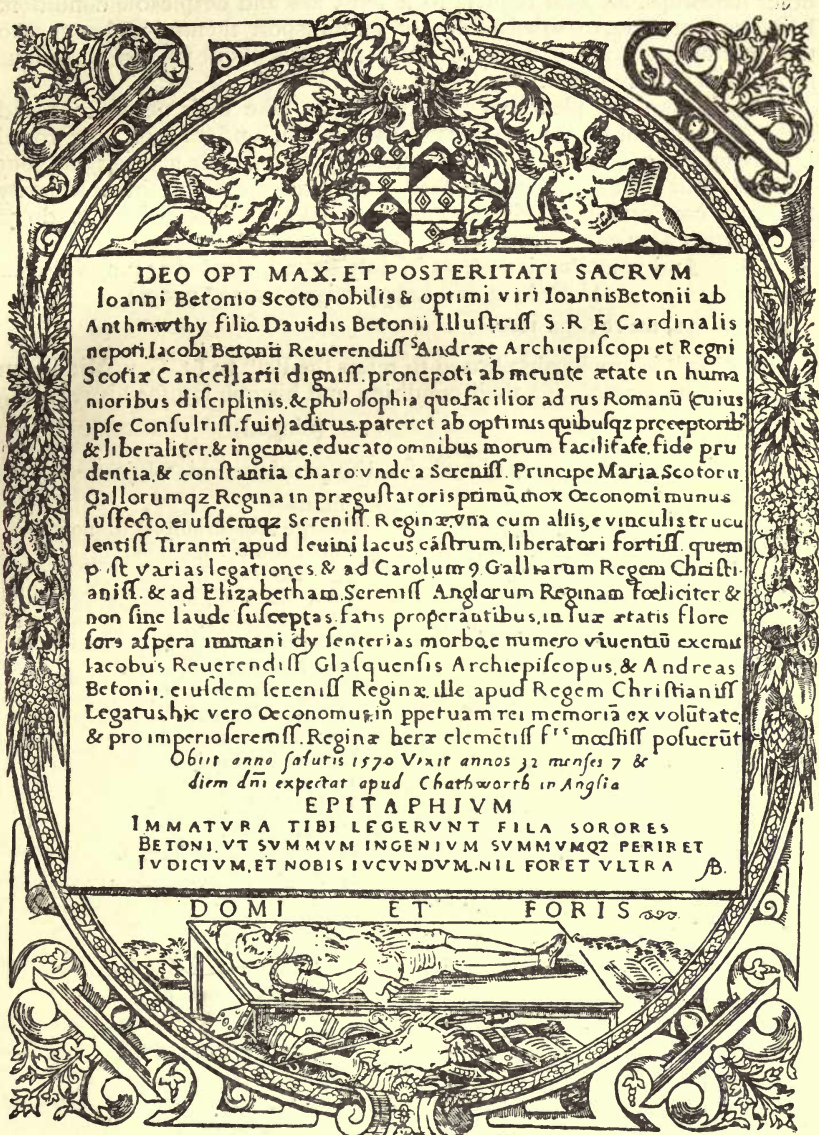 DEO OPT MAX. ET POSTERITATI SACRVM
Ioanni Betonio Scoto nobilis & optimi viri Ioannis Betonii ab
Anthmwthy filio Dauidis Betonii Illuſtriſſ S R E Cardinalis
nepoti, Iacobi Betonii Reuerendiſſ Sᵗ Andrææ Archiepiſcopi et Regni
Scotiæ Cancellarii digniſſ. pronepoti ab ineunte ætate in huma
nioribus diſciplinis, & philoſophia quo facilior ad rus Romanū (cuius
ipſe Conſultiſſ. fuit) aditus pateret ab optimis quibuſqz preceptoribꝰ
& liberaliter, & ingenue, educato omnibus morum facilitate, fide pru
dentia, & conſtantia charo vnde a Sereniſſ. Principe Maria Scotorū.
Gallorumqz Regina in prægustatoris primū, mox Œconomi munus
ſuffecto, eiuſdemqz Sereniſſ. Reginæ, vna cum aliis, e vinculis trucu
lentiſſ Tiranni, apud leuini lacus caſtrum, liberatori fortiſſ. quem
p ſt varias legationes & ad Carolum 9 Galliarum Regem Chriſti-
aniſſ. & ad Elizabetham, Sereniſſ Anglorum Reginam fœliciter &
non ſine laude ſuſceptas, fatis properantibus, in ſuæ ætatis flore
ſors aſpera immani dyſenterias morbo, e numero viuentiū exemit
Iacobus Reuerendiſſ Glaſquenſis Archiepiſcopus, & Andreas
Betonii, eiuſdem ſereniſſ Reginæ, ille apud Regem Chriſtianiſſ
Legatus, hic vero Œconomus, in ppetuam rei memoriā ex volūtate,
& pro imperio ſereniſſ. Reginæ heræ clemētiſſ fʳˢ mœſtiſſ poſuerūt
Obiit anno ſalutis 1570 Vixit annos 32 menſes 7 &
diem dñi expectat apud Chathworth in Anglia
EPITAPHIVM
IMMATVRA TIBI LEGERVNT FILA SORORES
BETONI, VT SVMMVM INGENIVM SVMMVMQZ PERIRET
IVDICIVM, ET NOBIS IVCVNDVM NIL FORET VLTRA AB.
DOMI ET FORIS